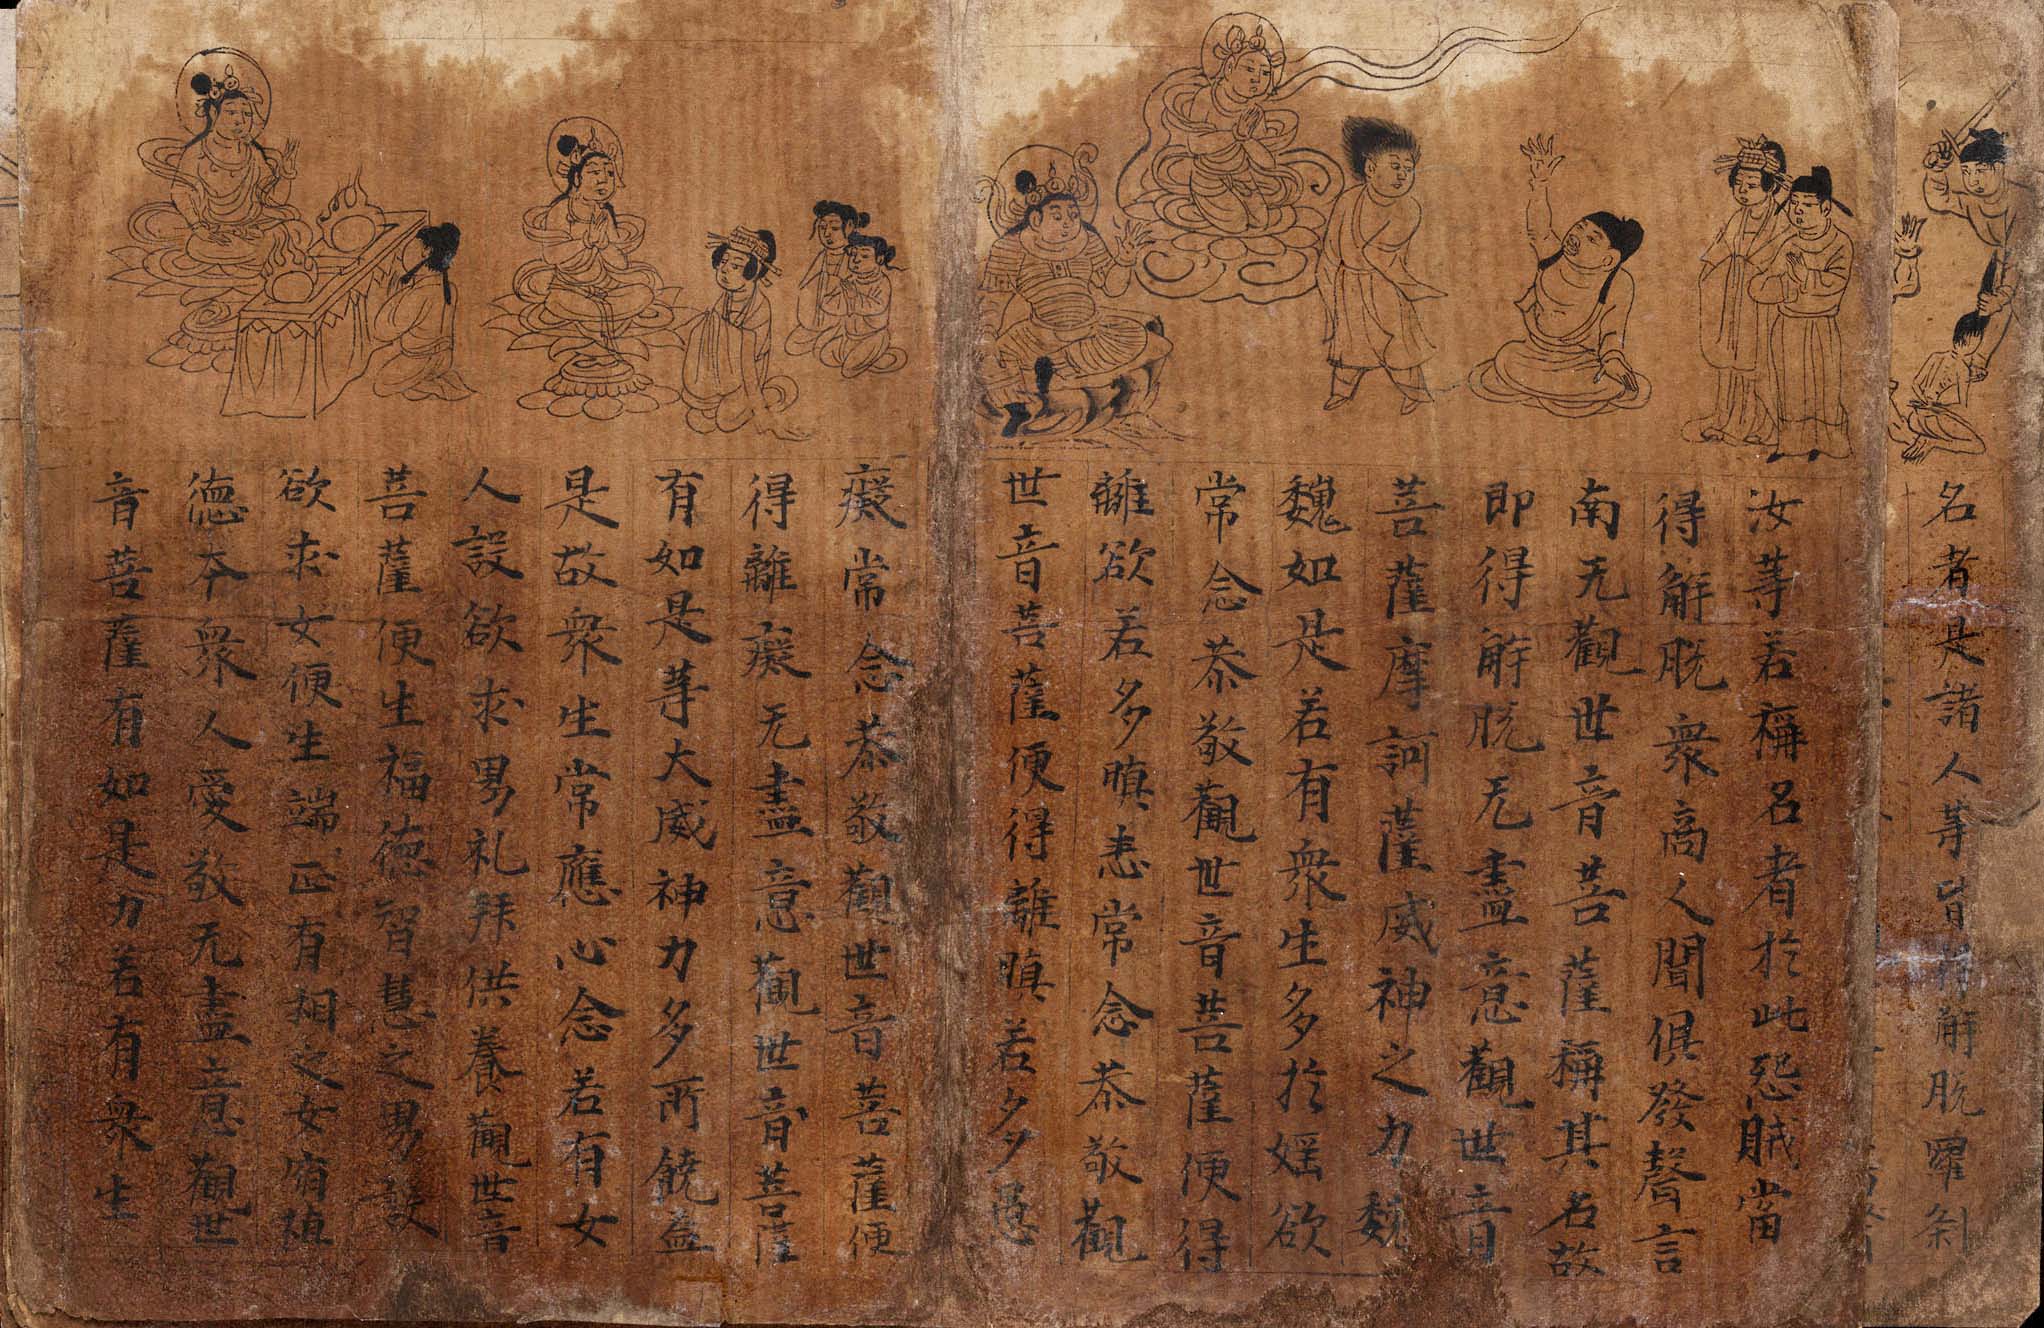 名者是諸人等皆得解脫羅刹
汝等若稱名者於此怨賊當
得解脫衆商人聞俱發聲言
南无觀世音菩薩稱其名故
即得解脫无盡意觀世音
菩薩摩訶薩威神之力巍
巍如是若有衆生多於婬欲
常念恭敬觀世音菩薩便得
離欲若多瞋恚常念恭敬觀
世音菩薩便得離瞋若多愚
癡常念恭敬觀世音菩薩便
得離癡无盡意觀世音菩薩
有如是等大威神力多所饒益
是故衆生常應心念若有女
人設欲求男礼拜供養觀世音
菩薩便生福德智慧之男設
欲求女便生端正有相之女宿植
德本衆人愛敬无盡意觀世
音菩薩有如是力若有衆生